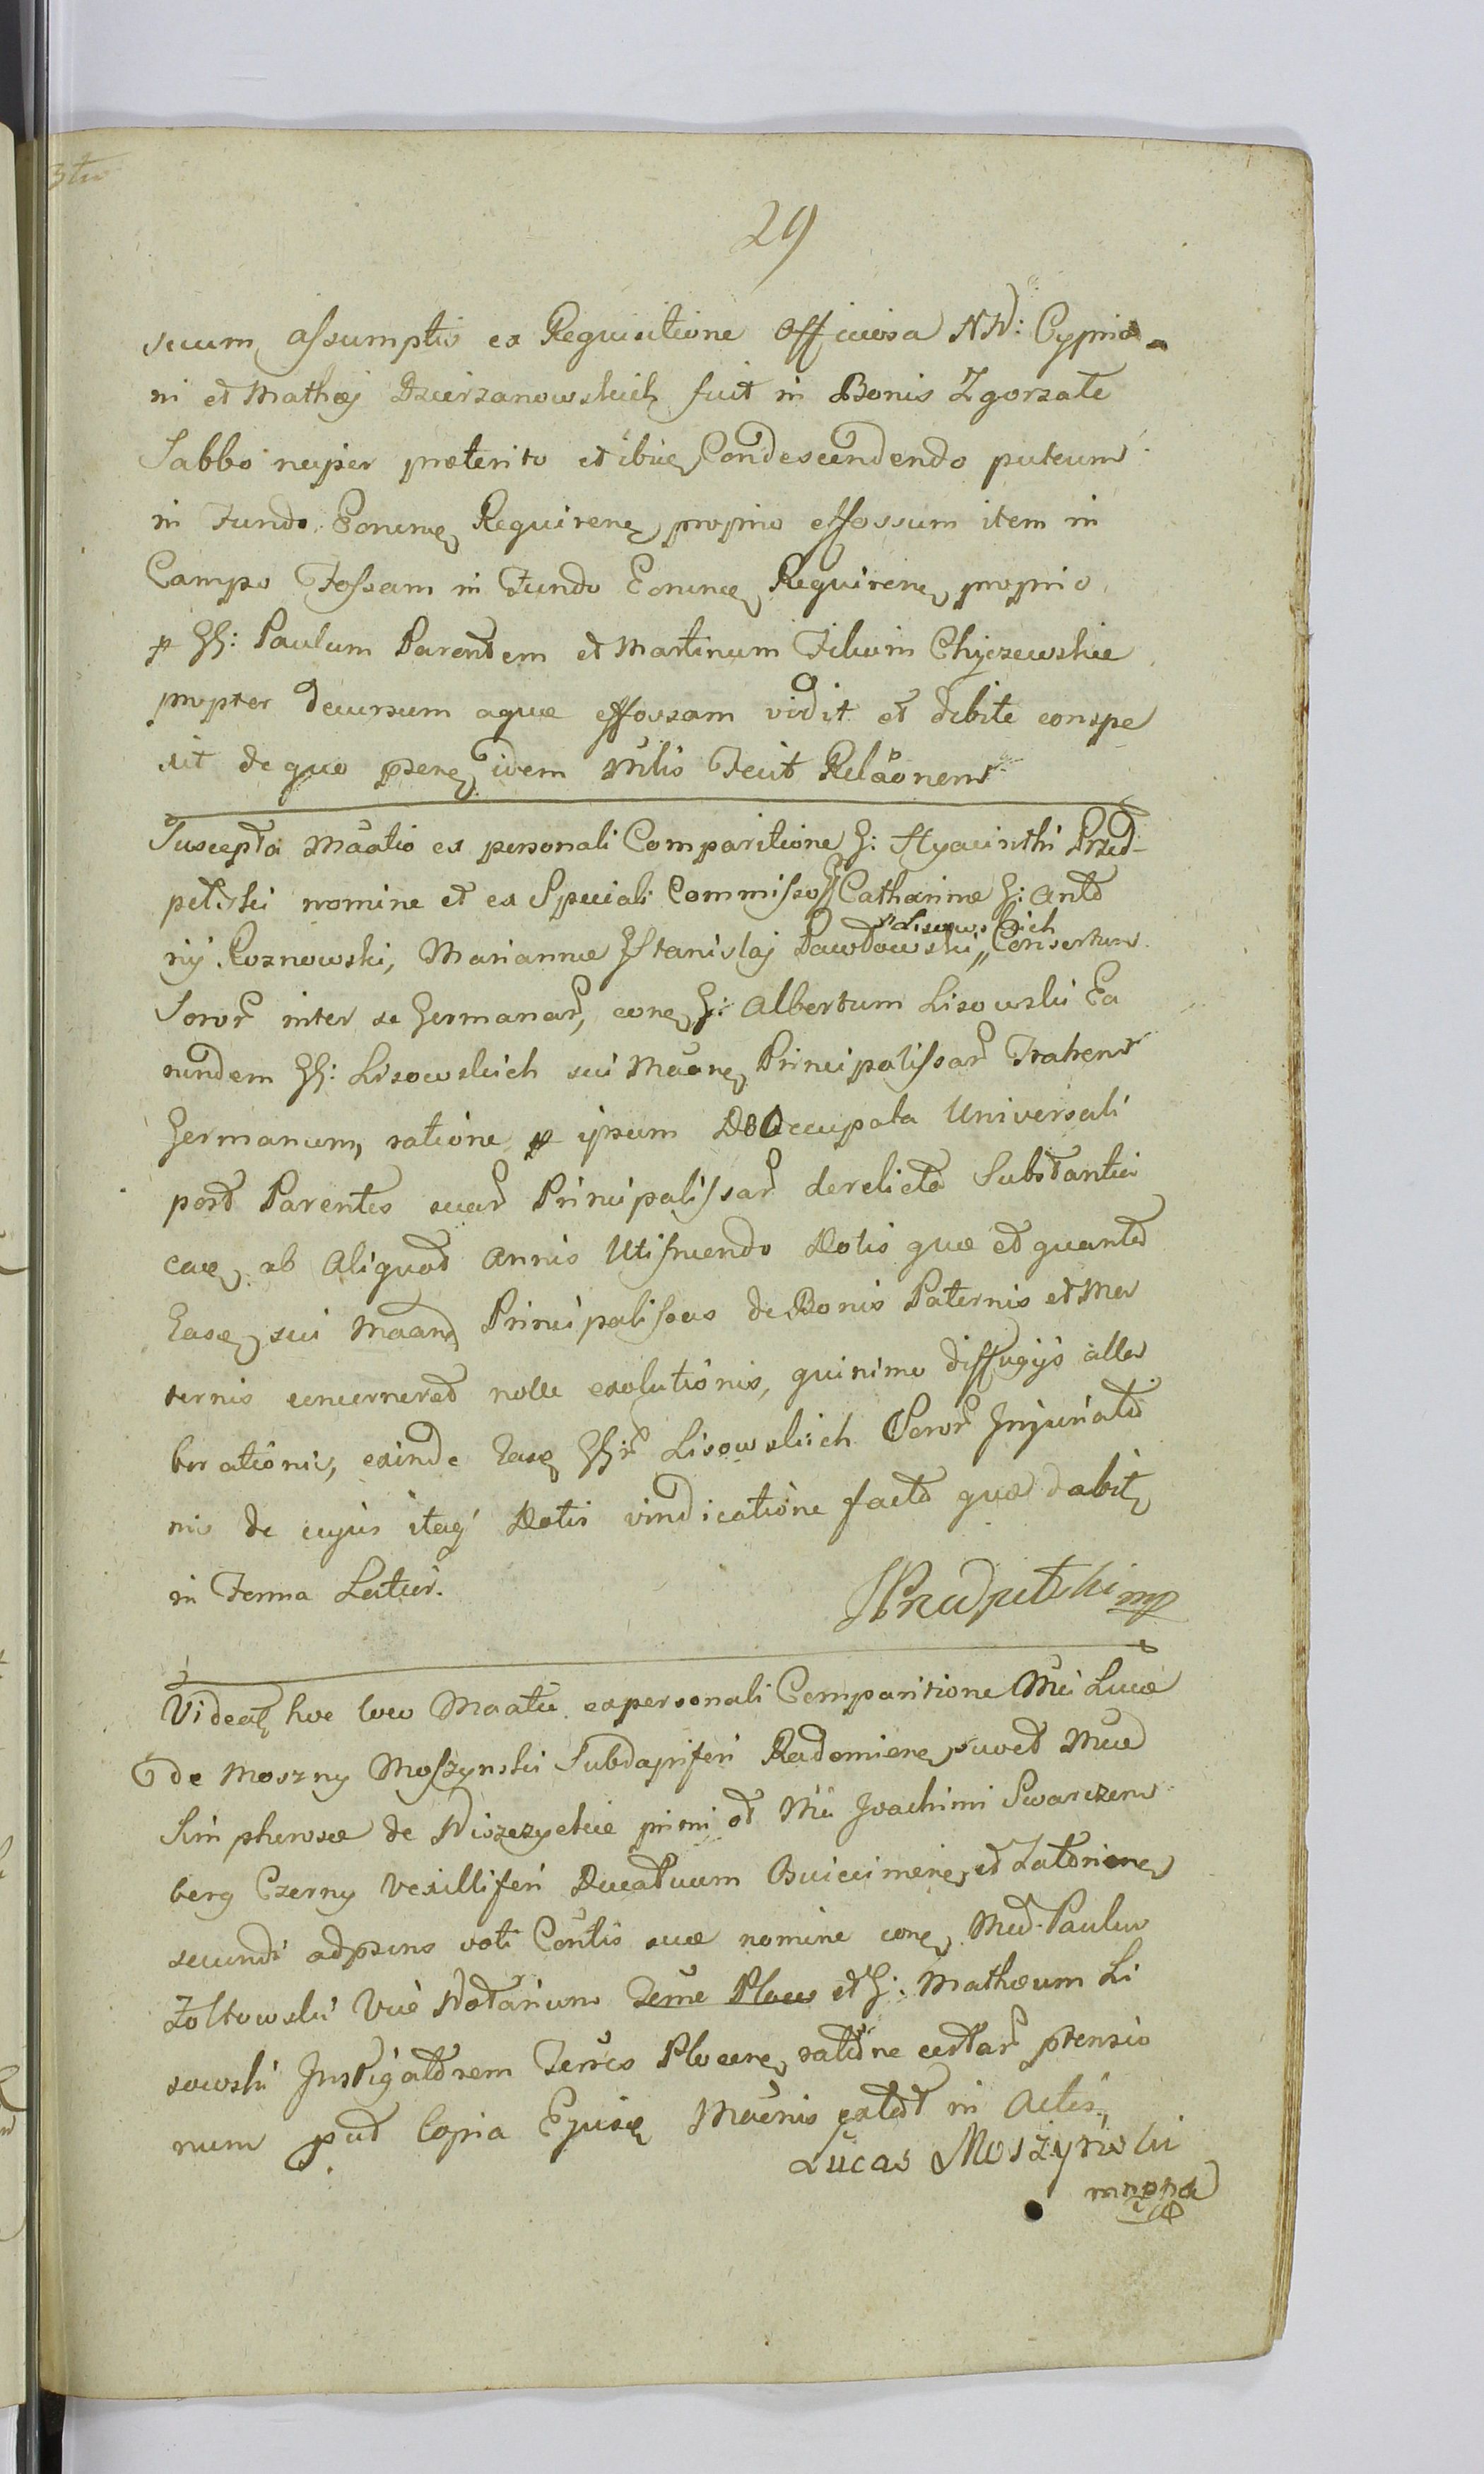 29
secum assumptis ex Requisitione Officiosa NN: Cypria-
ni et Mathæj Dzierzanowskich fuit in Bonis Zgorzałe
Sabbo nuper præterito et ibiq Condescendendo puteum
in Fundo Eorumq Requirenq proprio effossum item in
Campo Fossam in Fundo Eorumq Requirenq proprio
p GG: Paulum Parentem et Martinum Filium Chyczewskie
propter decursum aquæ effossam vidit et debite conspe
xit de quo psenq idem Mlis Fecit Relãonem
Suscepta Maatio ex personali Comparitione G: Hyacinthi Przed-
petski nomine et ex Speciali Commisso G Catharinæ G: Anto
nij Roznowski, Mariannæ G Stanislaj Pawłowski „ Consortum
„ Lisowskich
Soror inter se Germanar, conq G: Albertum Lisowski Ea
rundem GG: Lisowskich sui Maanq Principalissar Fratrem
Germanum, ratione p ipsum Occupata Universali
post Parentes suar Principalissar derelicta Substantia
eaq ab Aliquot Annis Utifruendo Dotis quæ et quanta
Easq sui Maanq Principalissas de Bonis Paternis et Ma
ternis concerneret nolle exolutionis, quinimo diffugijs alle
berationis, exinde Easq GGr Lisowskich Soror Injuriato
nis de cujus itaq Dotis vindicatione facto quæ dabitq
in Termo Latius.
HPrzedpetski mp
Videatq hoc loco Maatio ex personali Comparitione Mci Lucæ
de Moszny Moszynski Subdapiferi Radomienq suo et Mcæ
Simphorosæ de Niszczyckie primi et Mci Joachimi Swarczem
berg Czerny Vexilliferi Ducatuum Osviecimenq et Zatorienq
secundi adpsens voti Contis suæ nomine conq Mcd Paulum
Zołtowski Vice Notarium Terræ Ploces et G: Mathæum Li
sowski Instigatorem Terris Plocenq ratione certar ptensio
num put Copia Ejusq Maenis extat in Actis
Lucas Moszyński
mppa